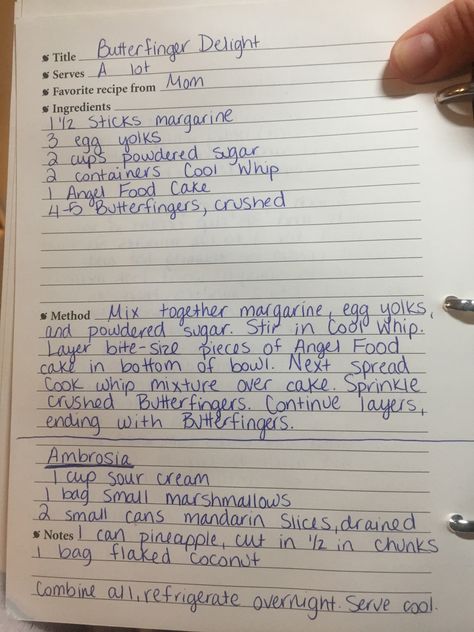 Title Butterfinger Delight
Serves A lot
Favorite recipe from Mom
Ingredients
1 1/2 sticks margarine
3 egg yolks
2 cups powdered sugar
2 containers Cool Whip
1 Angel Food Cake
4-5 Butterfingers, crushed
Method Mix together margarine, egg yolks,
and powdered sugar. Stir in Cool Whip.
Layer bite-size pieces of Angel Food
cake in bottom of bowl. Next spread
Cook whip mixture over cake. Sprinkle
crushed Butterfingers. Continue layers,
ending with Butterfingers.
Ambrosia
1 cup sour cream
1 bag small marshmallows
2 small cans mandarin slices, drained
Notes 1 can pineapple, cut in 1/2 in chunks
1 bag flaked coconut
Combine all, refrigerate overnight. Serve cool.